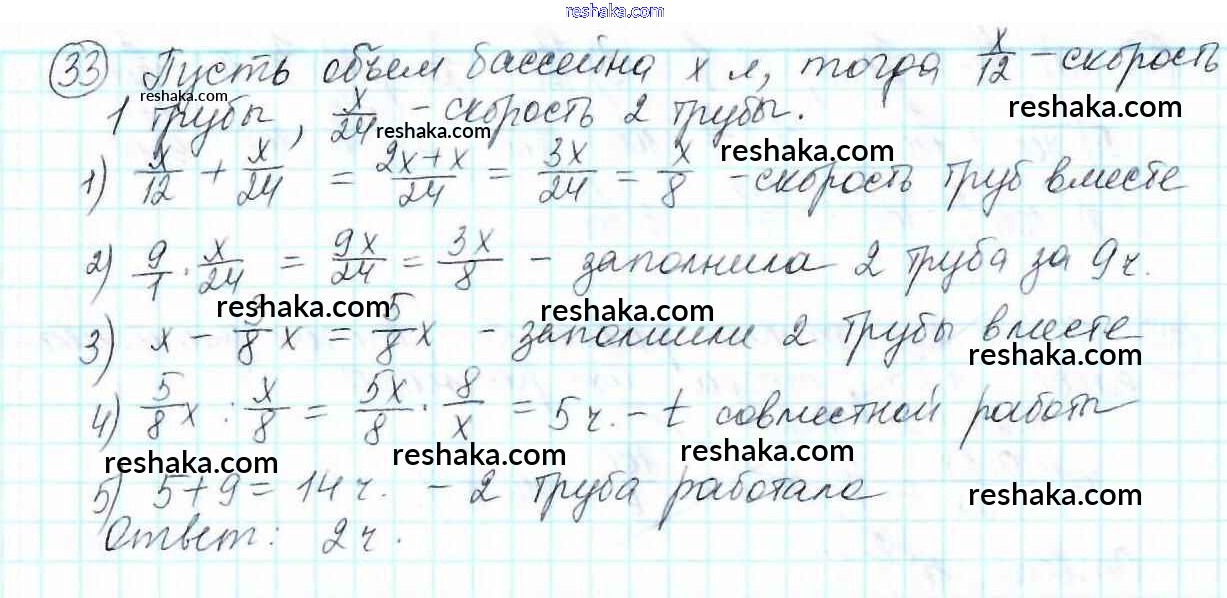 reshaka.com
33 Пусть объем бассейна x л, тогда x/12 – скорость
reshaka.com
reshaka.com
1 трубы, x/24 – скорость 2 трубы.
reshaka.com
reshaka.com
1) x/12 + x/24 = 2x+x/24 = 3x/24 = x/8 – скорость труб вместе
2) 9/1 · x/24 = 9x/24 = 3x/8 – заполнила 2 труба за 9 ч.
reshaka.com
reshaka.com
3) x – 3/8 x = 5/8 x – заполнили 2 трубы вместе
reshaka.com
4) 5/8 x : x/8 = 5x/8 · 8/x = 5 ч. – t совместной работы
reshaka.com
reshaka.com
reshaka.com
5) 5+9 = 14 ч. – 2 труба работала
reshaka.com
Ответ: 2 ч.